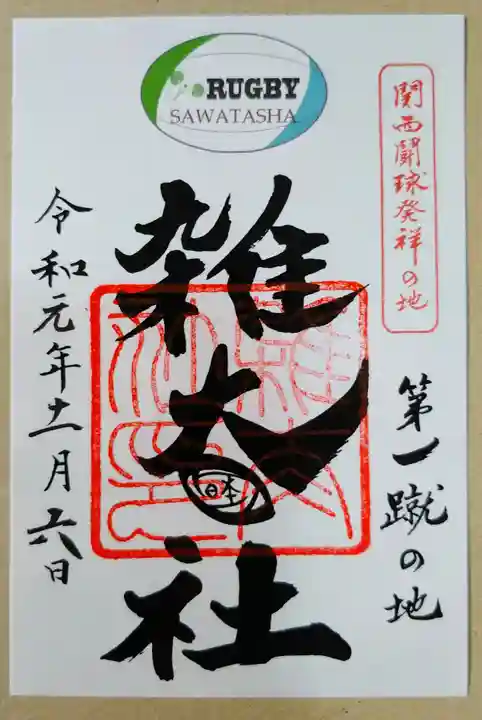 RUGBY
SAWATASHA
関西闘球発祥の地
第一蹴の地
雑太社
日本一
令和元年十一月六日